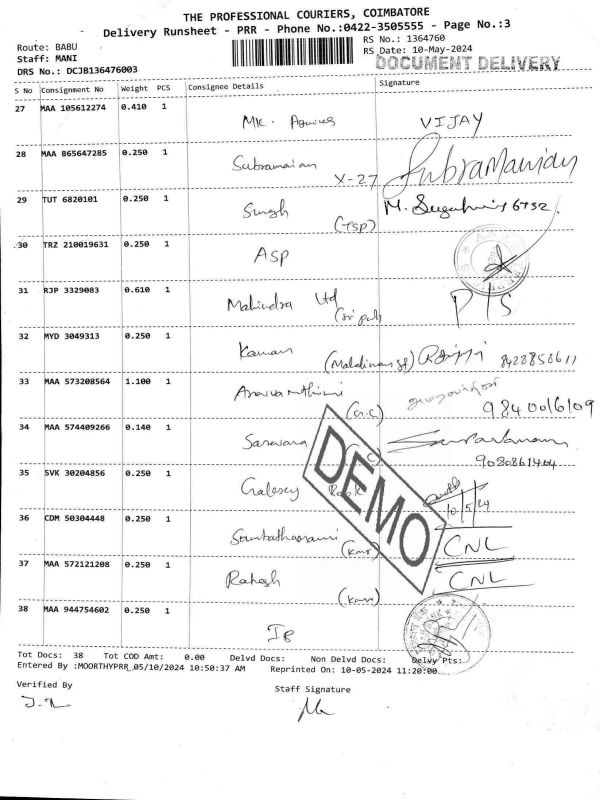 THE PROFESSIONAL COURIERS, COIMBATORE
Delivery Runsheet - PRR - Phone No.:0422-3505555 - Page No.:3
Route: BABU
RS No.: 1364760
Staff: MANI
RS Date: 10-May-2024
DRS No.: DCJB136476003
DOCUMENT DELIVERY
S No Consignment No Weight PCS Consignee Details Signature
27 MAA 105612274 0.410 1 MK. VIJAY
28 MAA 865647285 0.250 1 Subramanian X-27 Subramanian
29 TUT 6820101 0.250 1 Singh (TSP) M. 6732.
30 TRZ 210019631 0.250 1 ASP
31 RJP 3329083 0.610 1 Mahindra Ltd P/S
32 MYD 3049313 0.250 1 8428858611
33 MAA 573208564 1.100 1 (G.C) 9840016109
34 MAA 574409266 0.140 1 Saravana 9080861404
35 SVK 30204856 0.250 1 Galaxy 10/5/24
36 CDM 50304448 0.250 1 CNL
37 MAA 572121208 0.250 1 Rakesh CNL
38 MAA 944754602 0.250 1 IB
DEMO
Tot Docs: 38 Tot COD Amt: 0.00 Delvd Docs: Non Delvd Docs: Delvy Pts:
Entered By :MOORTHYPRR_05/10/2024 10:50:37 AM Reprinted On: 10-05-2024 11:20:00
Verified By
Staff Signature